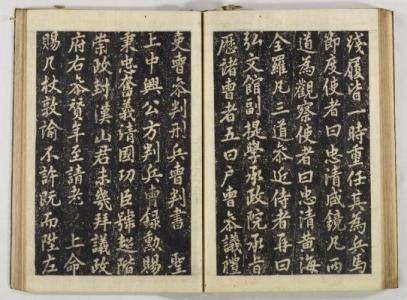 踐履皆一時重任其為兵馬
節度使者曰忠清咸鏡凡兩
道為觀察使者曰忠清黃海
全羅凡三道叅近侍者再曰
弘文館副提學承政院承旨
歷諸曹者五曰戶曹叅議禮
吏曹叅判刑兵曹判書 聖
上中興公方判兵曹錄勳賜
秉忠奮義靖國功臣號超階
崇政封漢山君未幾拜議政
府右叅贊年至請老 上命
賜几杖敦諭不許既而陞左